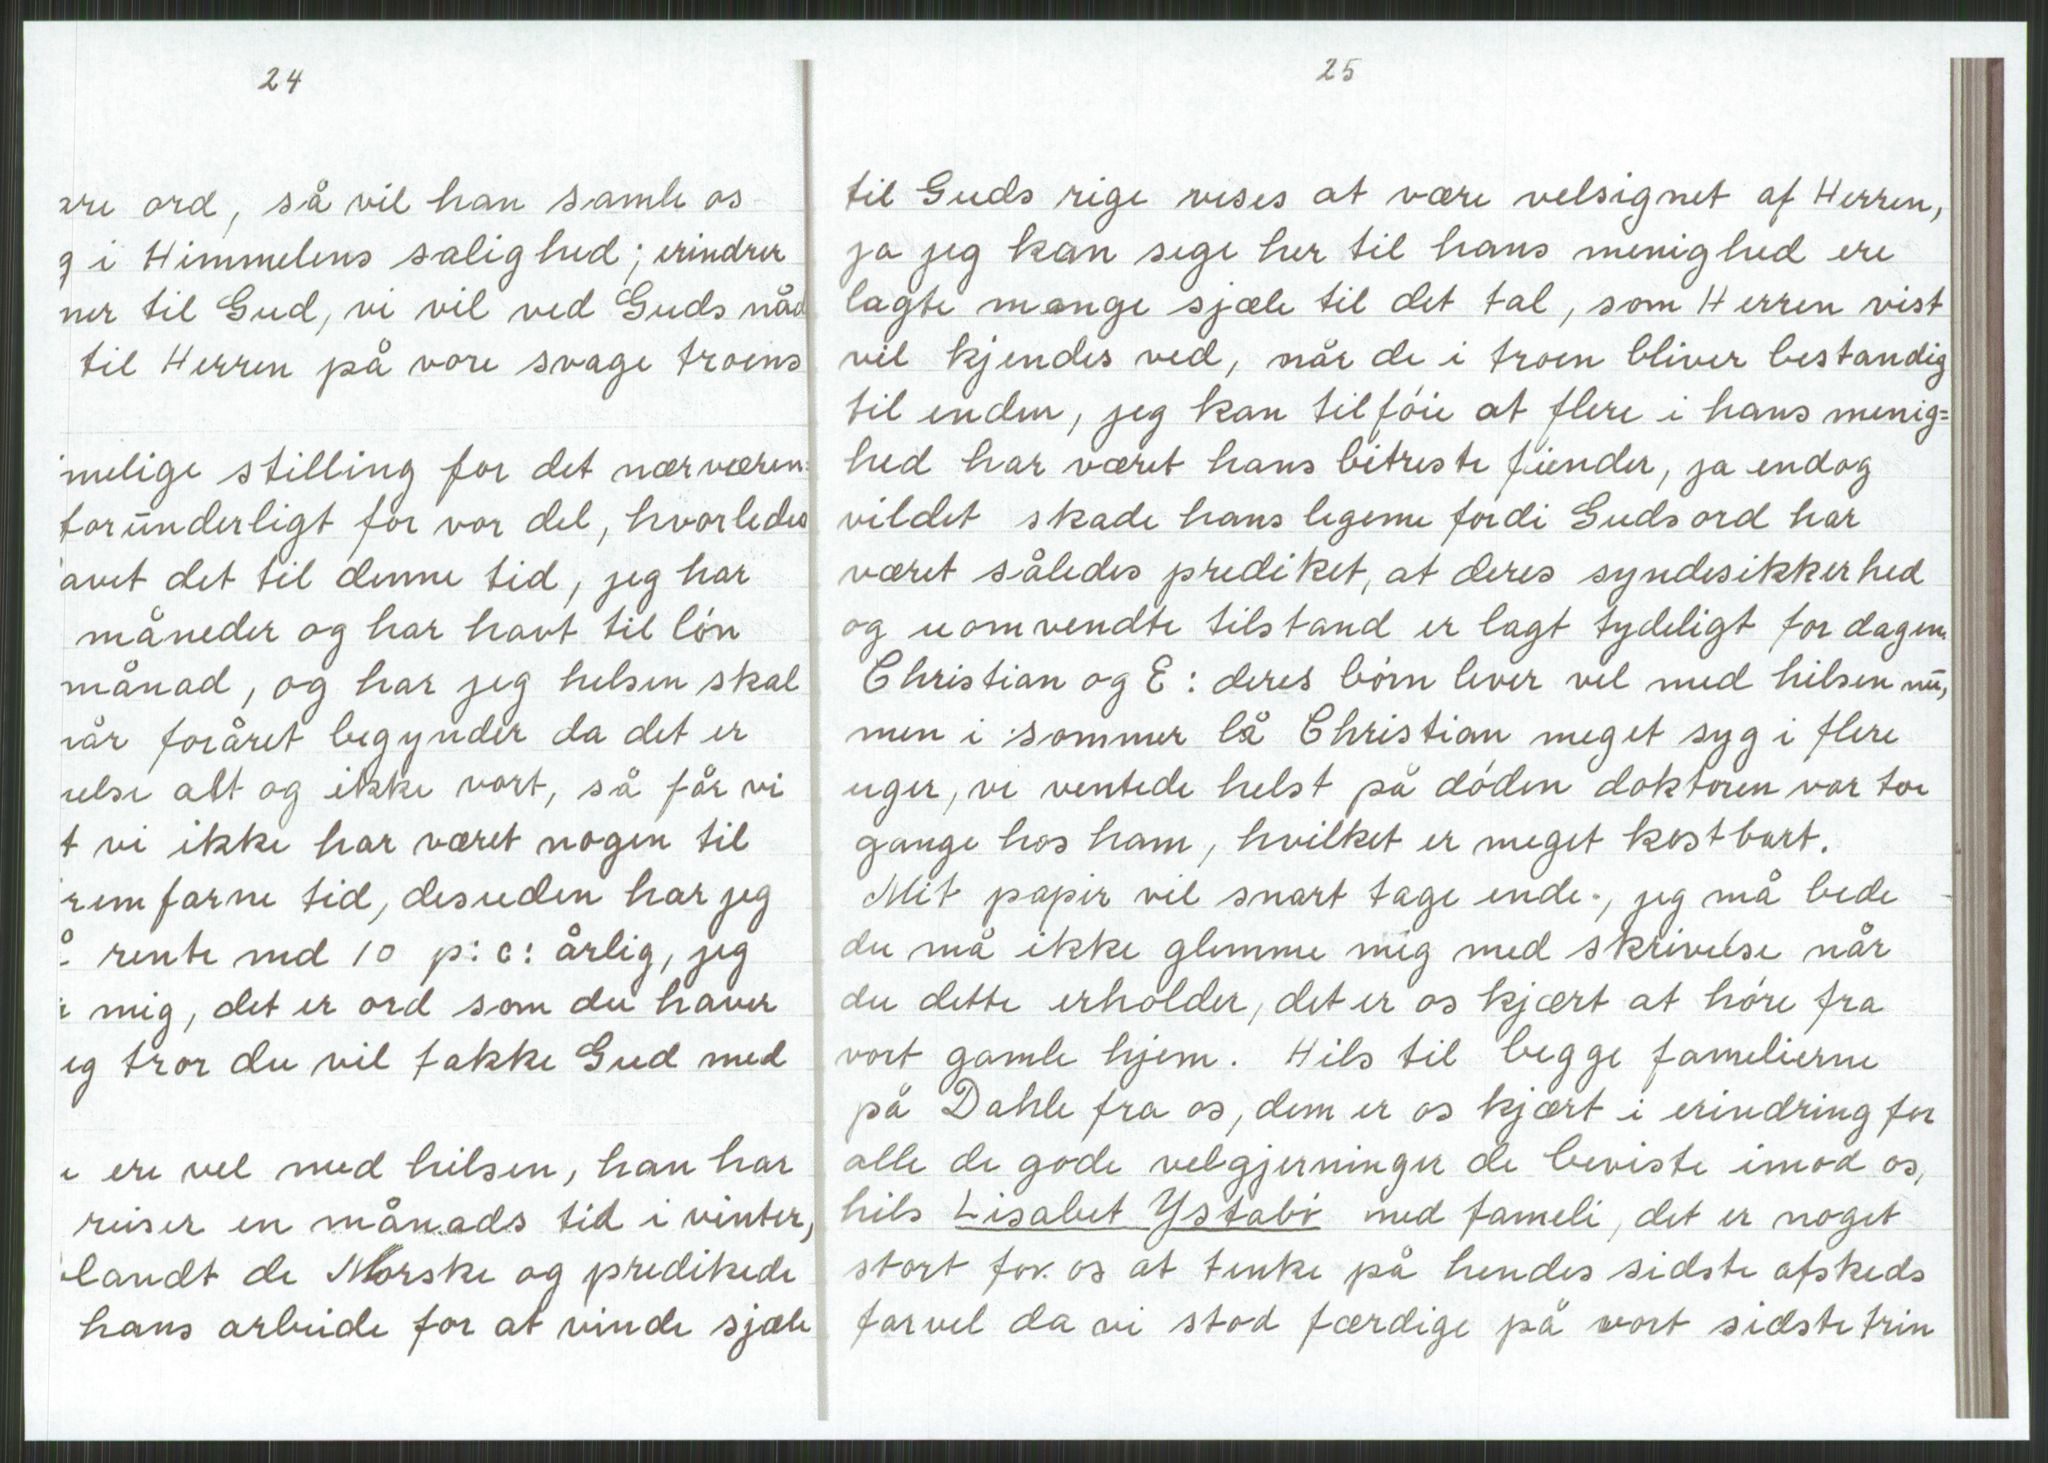 24
ord, så vil han samle os
i Himmelens salighed; erindrer
ner til Gud, vi vil ved Guds nåd
til Herren på vore svage troens
melige stilling for det nærværen=
forunderligt for vor del, hvorledes
avet det til denne tid, jeg har
måneder og har havt til lón
månad, og har jeg helsen skal
når foråret begynder da det er
else alt og ikke vort, så får vi
t vi ikke har været nogen til
remfarne tid, desuden har jeg
rente med 10 p:c: årlig, jeg
mig, det er ord som du haver
eg tror du vil takke Gud med
ere vel med hilsen, han har
reiser en månads tid i vinter,
landt de Norske og predikede
hans arbeide for at vinde sjæle
25
til Guds rige vises at være velsignet af Herren,
ja jeg kan sege her til hans menighed ere
lagte mange sjæle til det tal, som Herren vist
vil kjendes ved, når de i troen bliver bestandig
til enden, jeg kan tilfóie at flere i hans menig=
hed har været hans bitreste fiender, ja endog
vildet skade hans legeme fordi Guds ord har
været således prediket, at deres syndesikkerhed
og uomvendte tilstand er lagt tydeligt for dagen.
Christian og E: deres bórn lever vel med hilsen nū,
men i sommer lå Christian meget syg i flere
uger, vi ventede helst på dóden doktoren var toe
gange hos ham, hvilket er meget kostbart.
Mit papir vil snart tage ende., jeg må bede
du må ikke glemme mig med skrivelse når
du dette erholder, det er os kjært at hóre fra
vort gamle hjem. Hils til begge famelierne
på Dahle fra os, dem er os kjært i erindring for
alle de gode velgjerninger de beviste imod os,
hils Lisabet Ystabó med fameli, det er noget
stort for os at tenke på hendes sidste afskeds
farvel da vi stod færdige på vort sidste trin